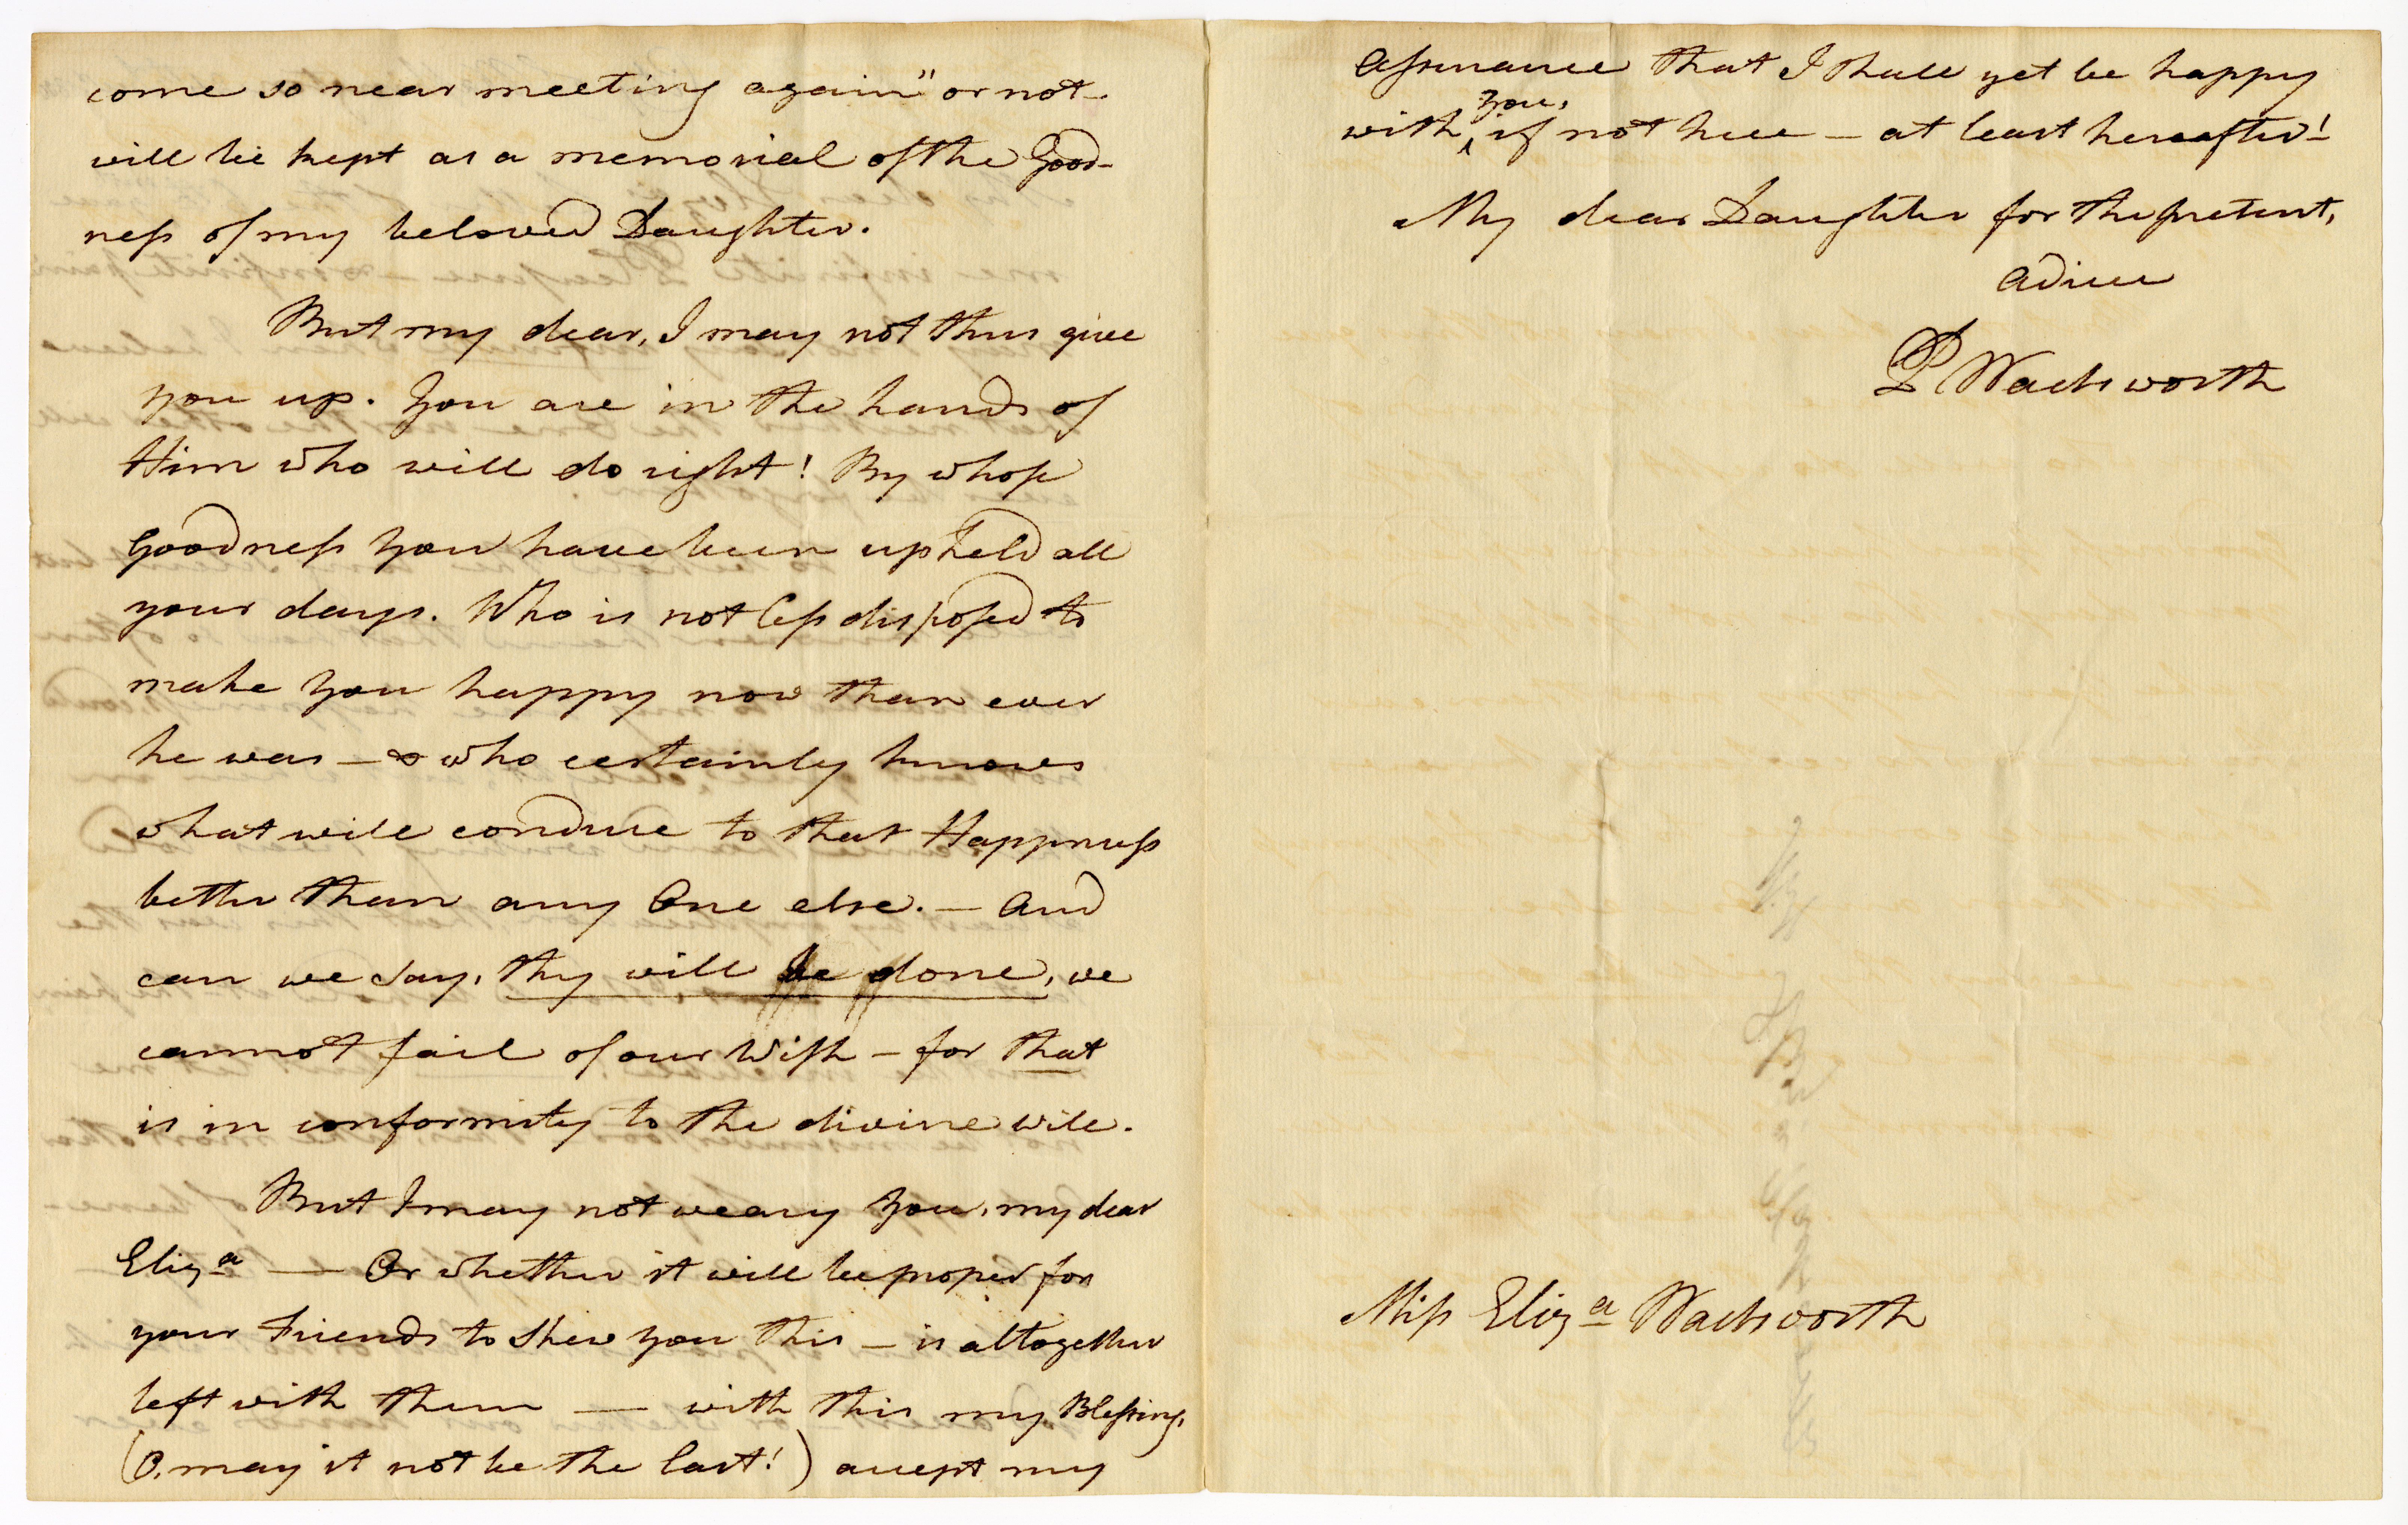 come so near meeting again" or not–
will be kept as a memorial of the Good-
ness of my beloved Daughter.
But my dear, I may not thus give
you up. You are in the hands of
Him who will do right! By whose
Goodness you have been upheld all
your days. Who is not less disposed to
make you happy now than ever
he was — & who certainly knows
what will conduce to that Happiness
better than any One else. — And
can we say, thy will be done, we
cannot fail of our Wish – for that
is in conformity to the divine will.
But I may not weary you, my dear
Eliza — Or whether it will be proper for
your Friends to shew you this — is altogether
left with them — with this my Blessing,
(O, may it not be the last!) accept my
assurance that I shall yet be happy
with you, if not here — at least hereafter!
My dear Daughter for the present,
adieu
P Wadsworth
Miss Eliza Wadsworth